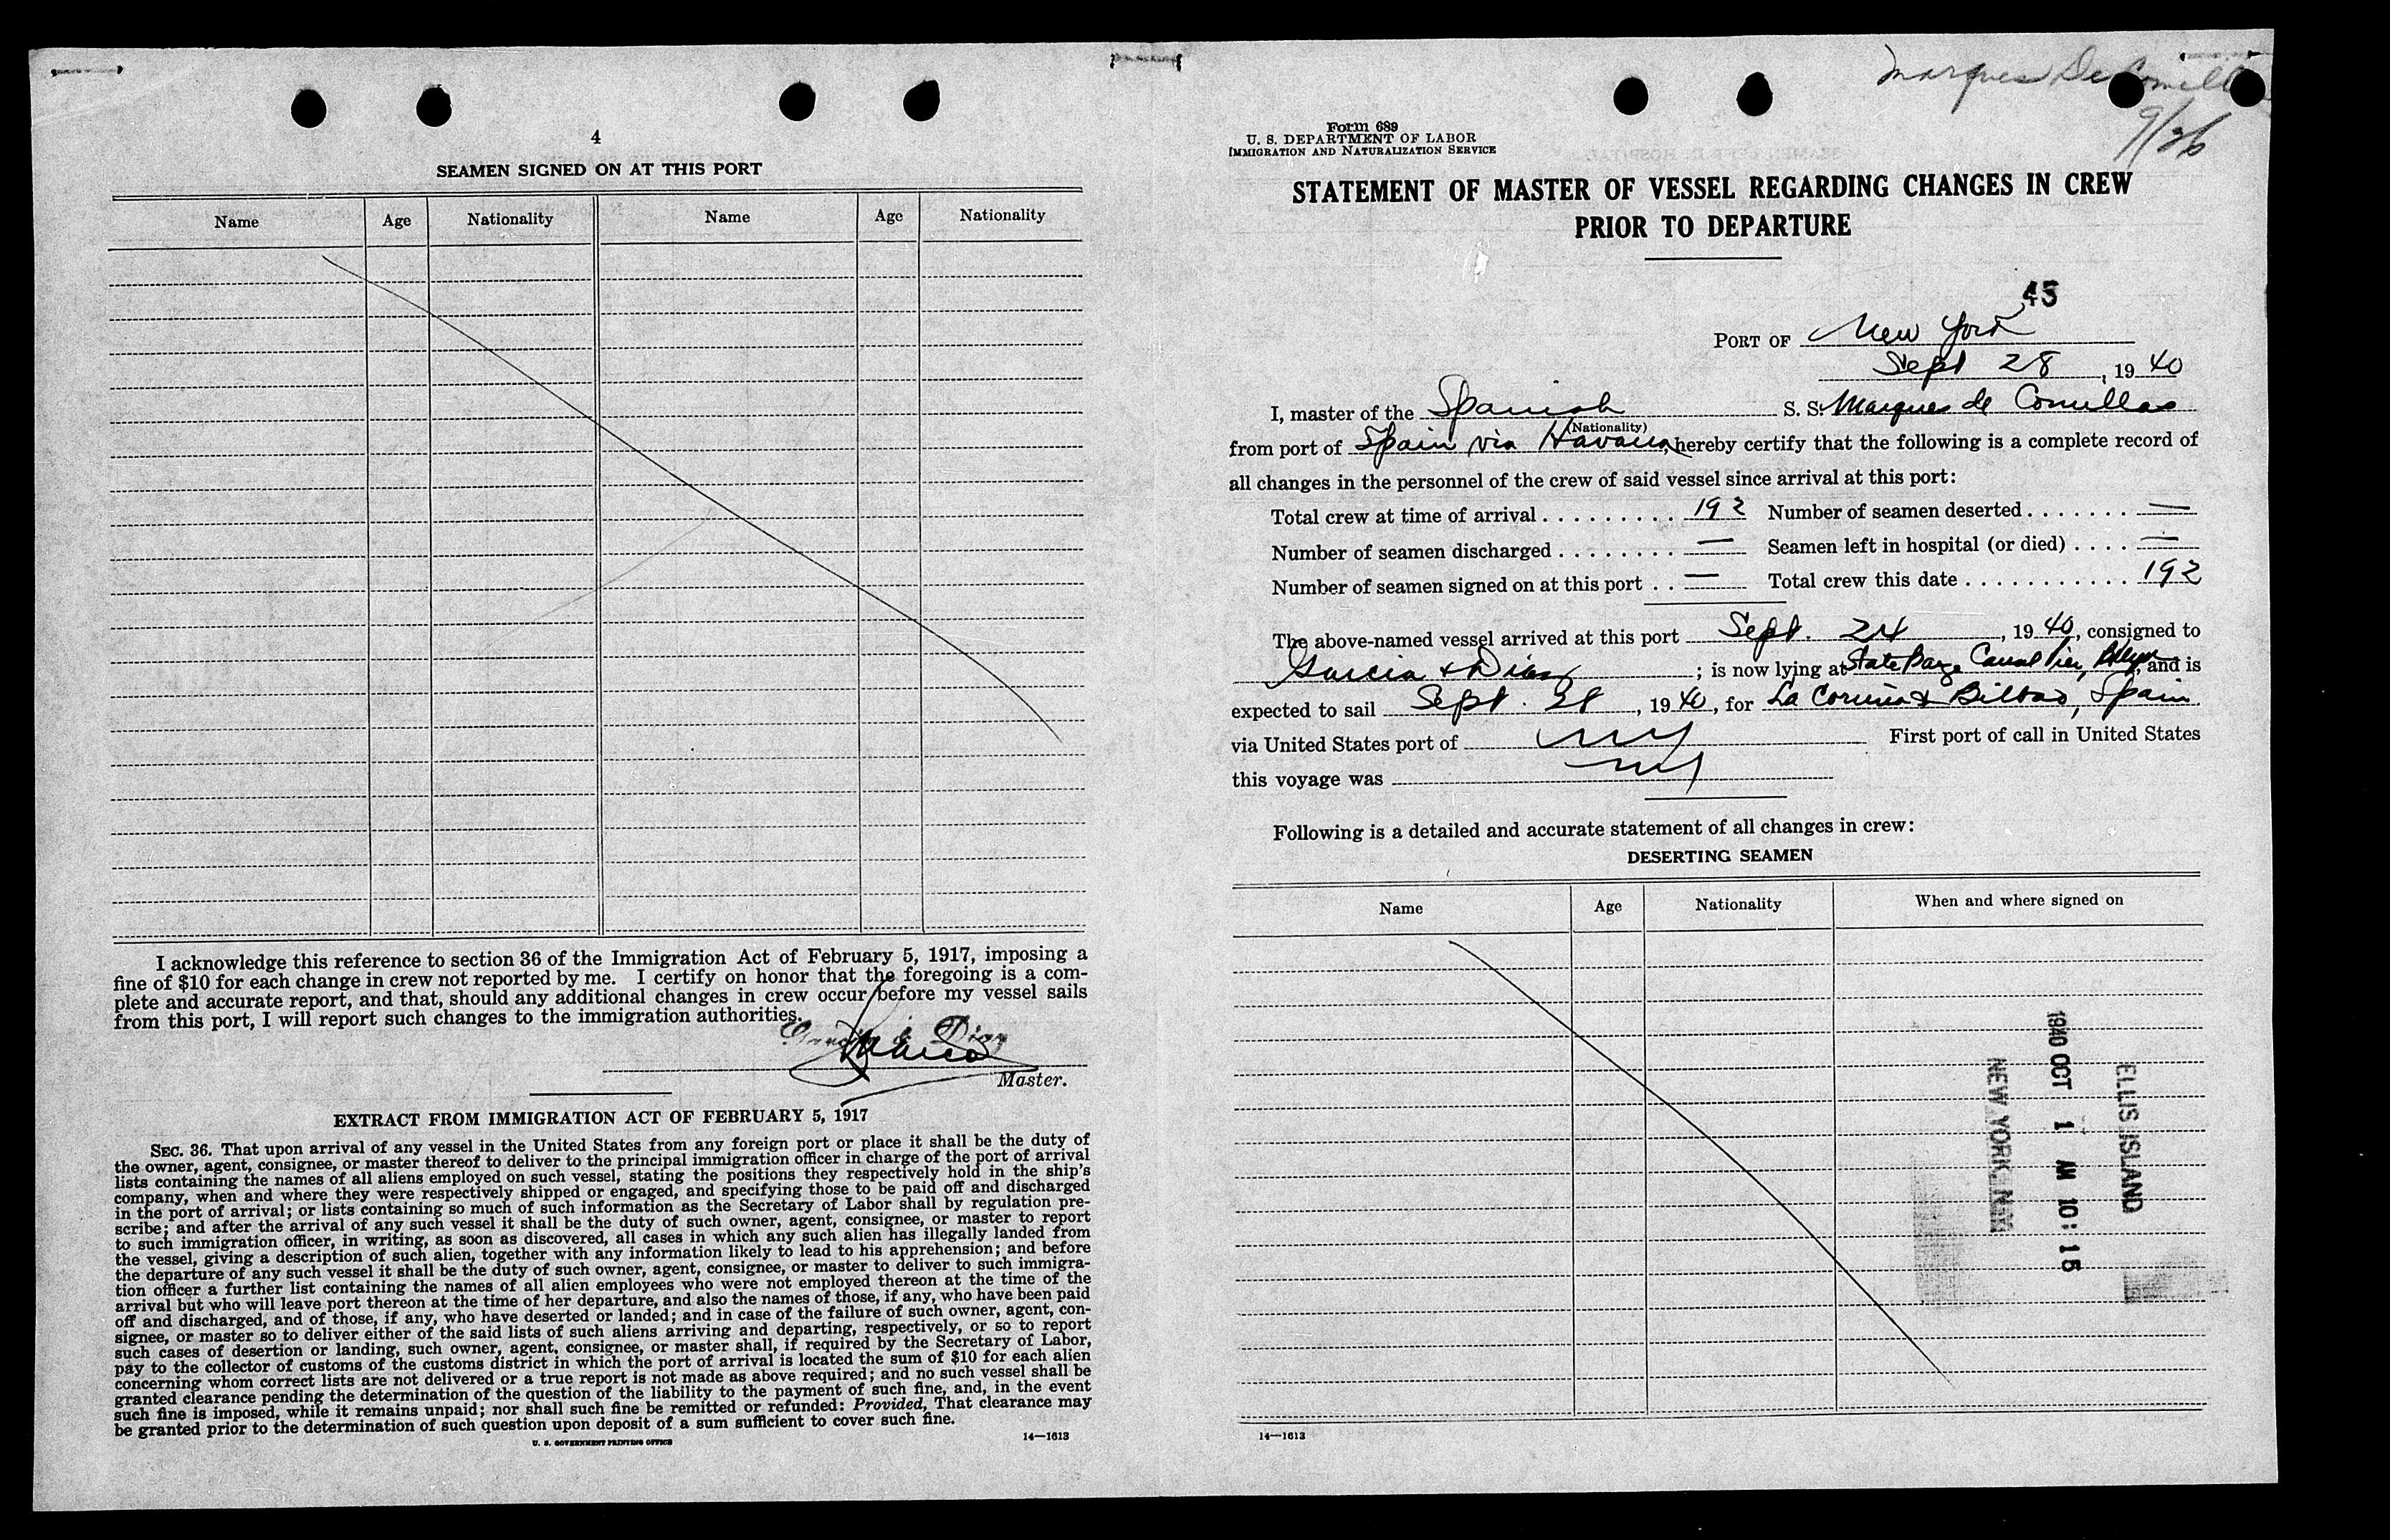 4
SEAMEN SIGNED ON AT THIS PORT
Name Age Nationality Name Age Nationality
I acknowledge this reference to section 36 of the Immigration Act of February 5, 1917, imposing a
fine of $10 for each change in crew not reported by me. I certify on honor that the foregoing is a com-
plete and accurate report, and that, should any additional changes in crew occur before my vessel sails
from this port, I will report such changes to the immigration authorities.
Garcia & Diaz
Master.
EXTRACT FROM IMMIGRATION ACT OF FEBRUARY 5, 1917
SEC. 36. That upon arrival of any vessel in the United States from any foreign port or place it shall be the duty of
the owner, agent, consignee, or master thereof to deliver to the principal immigration officer in charge of the port of arrival
lists containing the names of all aliens employed on such vessel, stating the positions they respectively hold in the ship's
company, when and where they were respectively shipped or engaged, and specifying those to be paid off and discharged
in the port of arrival; or lists containing so much of such information as the Secretary of Labor shall by regulation pre-
scribe; and after the arrival of any such vessel it shall be the duty of such owner, agent, consignee, or master to report
to such immigration officer, in writing, as soon as discovered, all cases in which any such alien has illegally landed from
the vessel, giving a description of such alien, together with any information likely to lead to his apprehension; and before
the departure of any such vessel it shall be the duty of such owner, agent, consignee, or master to deliver to such immigra-
tion officer a further list containing the names of all alien employees who were not employed thereon at the time of the
arrival but who will leave port thereon at the time of her departure, and also the names of those, if any, who have been paid
off and discharged, and of those, if any, who have deserted or landed; and in case of the failure of such owner, agent, con-
signee, or master so to deliver either of the said lists of such aliens arriving and departing, respectively, or so to report
such cases of desertion or landing, such owner, agent, consignee, or master shall, if required by the Secretary of Labor,
pay to the collector of customs of the customs district in which the port of arrival is located the sum of $10 for each alien
concerning whom correct lists are not delivered or a true report is not made as above required; and no such vessel shall be
granted clearance pending the determination of the question of the liability to the payment of such fine, and, in the event
such fine is imposed, while it remains unpaid; nor shall such fine be remitted or refunded: Provided, That clearance may
be granted prior to the determination of such question upon deposit of a sum sufficient to cover such fine.
U. S. GOVERNMENT PRINTING OFFICE 14—1613
Marques De Comill
9/26
Form 689
U. S. DEPARTMENT OF LABOR
IMMIGRATION AND NATURALIZATION SERVICE
STATEMENT OF MASTER OF VESSEL REGARDING CHANGES IN CREW
PRIOR TO DEPARTURE
45
PORT OF New York
Sept 28, 1940
I, master of the Spanish S. S. Marques de Comillas
(Nationality)
from port of Spain via Havana, hereby certify that the following is a complete record of
all changes in the personnel of the crew of said vessel since arrival at this port:
Total crew at time of arrival . . . . . . . . . . 192 Number of seamen deserted . . . . . . . —
Number of seamen discharged . . . . . . . . — Seamen left in hospital (or died) . . . . —
Number of seamen signed on at this port . . — Total crew this date . . . . . . . . . . . . 192
The above-named vessel arrived at this port Sept. 24, 1940, consigned to
Garcia & Diaz; is now lying at State Barge Canal Pier, Bklyn, and is
expected to sail Sept. 28, 1940, for La Coruña & Bilbao, Spain
via United States port of NY First port of call in United States
this voyage was NY
Following is a detailed and accurate statement of all changes in crew:
DESERTING SEAMEN
Name Age Nationality When and where signed on
ELLIS ISLAND
1940 OCT 1 AM 10:15
NEW YORK
14—1613